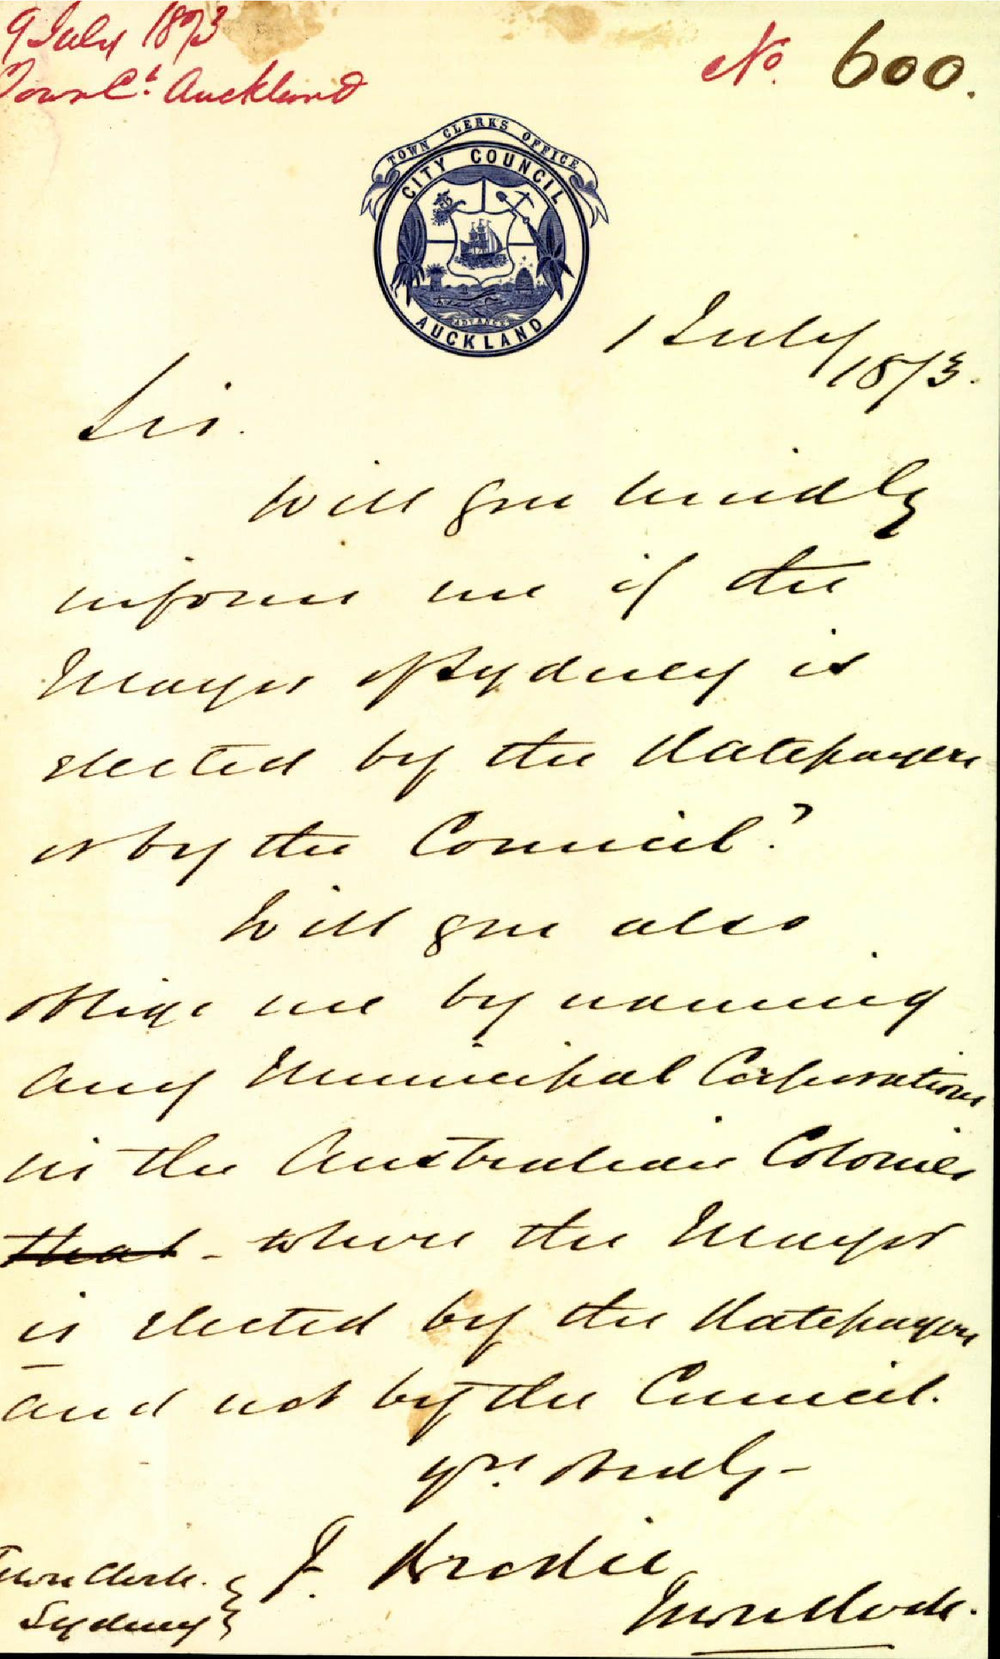 9 July 1873
Town Ct. Auckland
No. 600.
TOWN CLERKS OFFICE
CITY COUNCIL
ADVANCE
AUCKLAND
1 July
1873.
Sir.
Will you kindly
inform me if the
Mayor of Sydney is
elected by the Ratepayers
or by the Council?
Will you also
oblige me by naming
any Municipal Corporations
in the Australian Colonies
that - where the Mayor
is elected by the Ratepayers
and not by the Council.
yrs. truly
Town Clerk.
Sydney
Town Clerk.